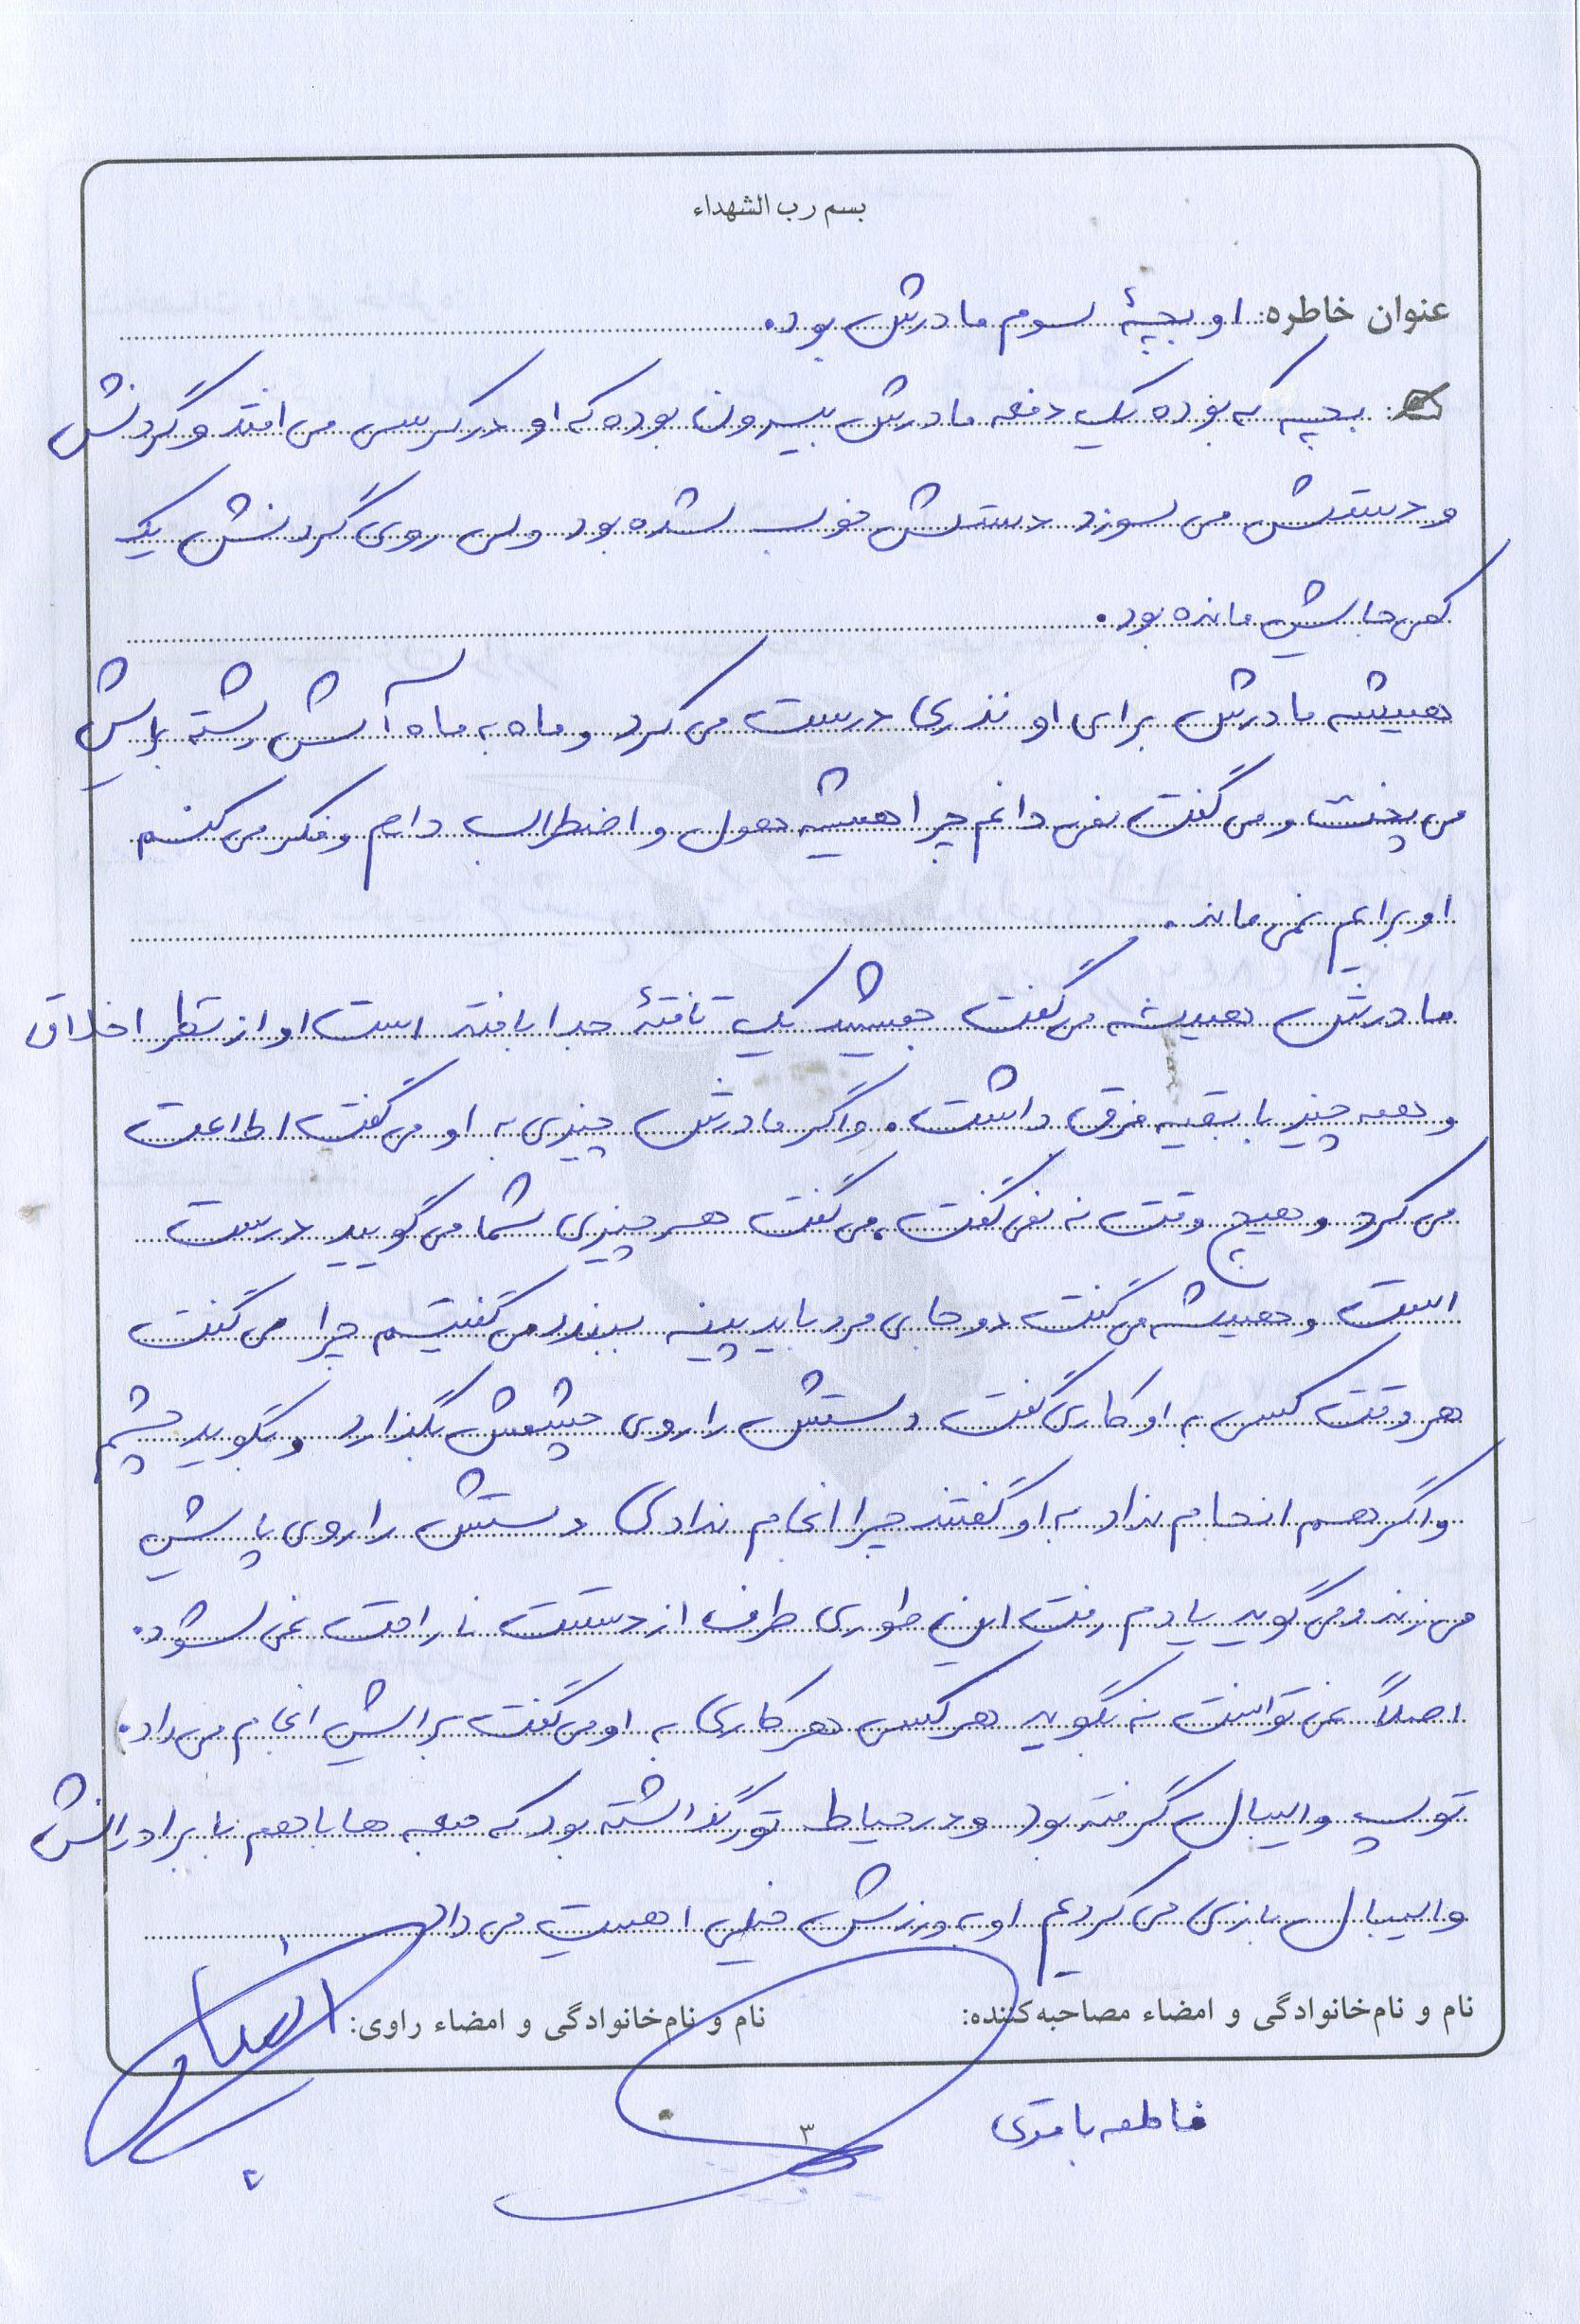 بسم رب الشهداء
عنوان خاطره: او بچۀ سوم مادرش بود.
بچه که بوده یک دفعه مادرش بیرون بوده که او در کرسی می افتد و گردنش
و دستش می سوزد دستش خوب شده بود ولی روی گردنش یک
کمی جایش مانده بود.
همیشه مادرش برای او نذری درست می کرد و ماه به ماه آش رشته برایش
می پخت و می گفت نمی دانم چرا همیشه هول و اضطراب دارم و فکر می کنم
او برایم نمی ماند.
مادرش همیشه می گفت جمشید یک تافتۀ جدا بافته است او از نظر اخلاق
و همه چیز با بقیه فرق داشت. و اگر مادرش چیزی به او می گفت اطاعت
می کرد و هیچ وقت نه نمی گفت، می گفت هر چیزی شما می گویید درست
است و همیشه می گفت دو جای مرد باید پینه ببندد می گفتیم چرا می گفت
هر وقت کسی به او کاری گفت دستش را روی چشمش بگذارد و بگوید چشم
و اگر هم انجام نداد به او گفتند چرا انجام ندادی دستش را روی پایش
می زند و می گوید یادم رفت این طوری طرف از دستت ناراحت نمی شود.
اصلاً نمی توانست نه بگوید هر کسی هر کاری به او می گفت برایش انجام می داد.
توپ والیبال گرفته بود و در حیاط تور گذاشته بود که جمعه ها با هم با برادرانش
والیبال بازی می کردیم او به ورزش خیلی اهمیت می داد
نام و نام‌خانوادگی و امضاء مصاحبه‌کننده: نام و نام‌خانوادگی و امضاء راوی:
فاطمه باقری
۳